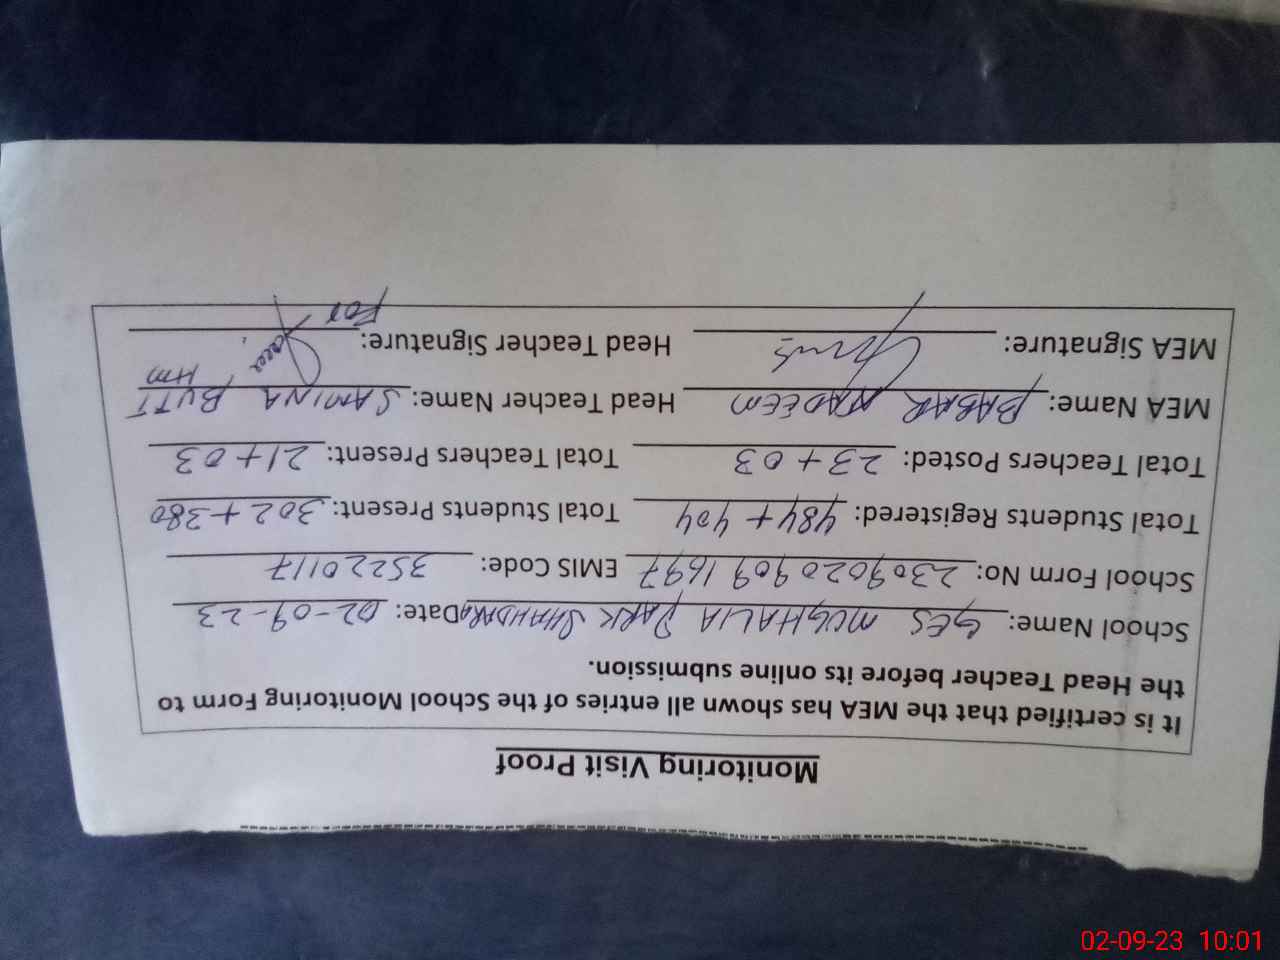 Monitoring Visit Proof
It is certified that the MEA has shown all entries of the School Monitoring Form to
the Head Teacher before its online submission.
School Name: GES MUGHALIA PARK SHAHDARA Date: 02-09-23
School Form No: 2309020909 1697 EMIS Code: 35220117
Total Students Registered: 484 + 404 Total Students Present: 302 + 380
Total Teachers Posted: 23 + 03 Total Teachers Present: 21 + 03
MEA Name: BABAR NADEEM Head Teacher Name: SAMINA BUTT
HM
MEA Signature: Head Teacher Signature:
For
02-09-23 10:01